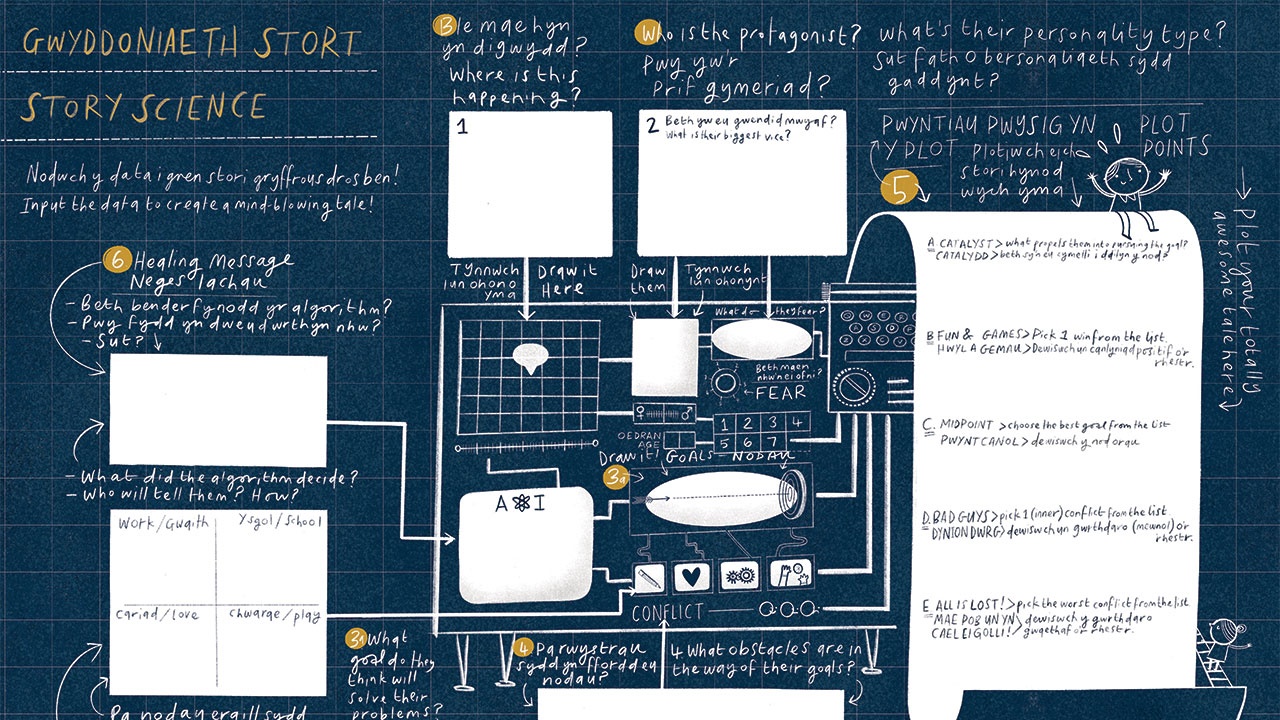 GWYDDONIAETH STORI
STORY SCIENCE
Nodwch y data i greu stori gryffrous dros ben!
Input the data to create a mind-blowing tale!
Ble mae hyn
yn digwydd?
Where is this
happening?
1
Tynnwch
lun ohono
yma
Draw it
Here
Who is the protagonist?
Pwy yw'r
Prif gymeriad?
2 Beth yw eu gwendid mwyaf?
What is their biggest vice?
Draw
them
Tynnwch
lun ohonynt
What's their personality type?
Sut fath o bersonaliaeth sydd
ganddynt?
PWYNTIAU PWYSIG YN
Y PLOT
PLOT
POINTS
5
Plotiwch eich
stori hynod
wych yma
Plot your totally
awesome tale here
A CATALYST > what propels them into pursuing the goal?
CATALYDD > beth sy'n eu cymell i ddilyn y nod?
B FUN & GAMES > Pick 1 win from the list
HWYL A GEMAU > Dewiswch un canlyniad positif o'r
rhestr.
C. MIDPOINT > choose the best goal from the list
PWYNT CANOL > dewiswch y nod orau
D. BAD GUYS > pick 1 (inner) conflict from the list
DYNION DWRG > dewiswch un gwrthdaro (mewnol) o'r
rhestr.
E ALL IS LOST! > pick the worst conflict from the list
MAE POB UN YN
CAEL EI GOLLI! > dewiswch y gwrthdaro
gwaethaf o'r rhestr.
6 Healing Message
Neges Iachau
- Beth benderfynodd yr algorithm?
- Pwy fydd yn dweud wrthyn nhw?
- Sut?
- What did the algorithm decide?
- Who will tell them? How?
Work/Gwaith
Ysgol/School
cariad/love
chwarae/play
What do they fear?
Beth maen
nhw'n ei ofni?
FEAR
OEDRAN
AGE
1 2 3 4
5 6 7
Draw it! GOALS - NODAU
3a
A I
CONFLICT
3a What
goal do they
think will
solve their
problems?
4 Pa rwystrau
sydd yn ffordd eu
nodau?
4 What obstacles are in
the way of their goals?
Pa nodau eraill sydd